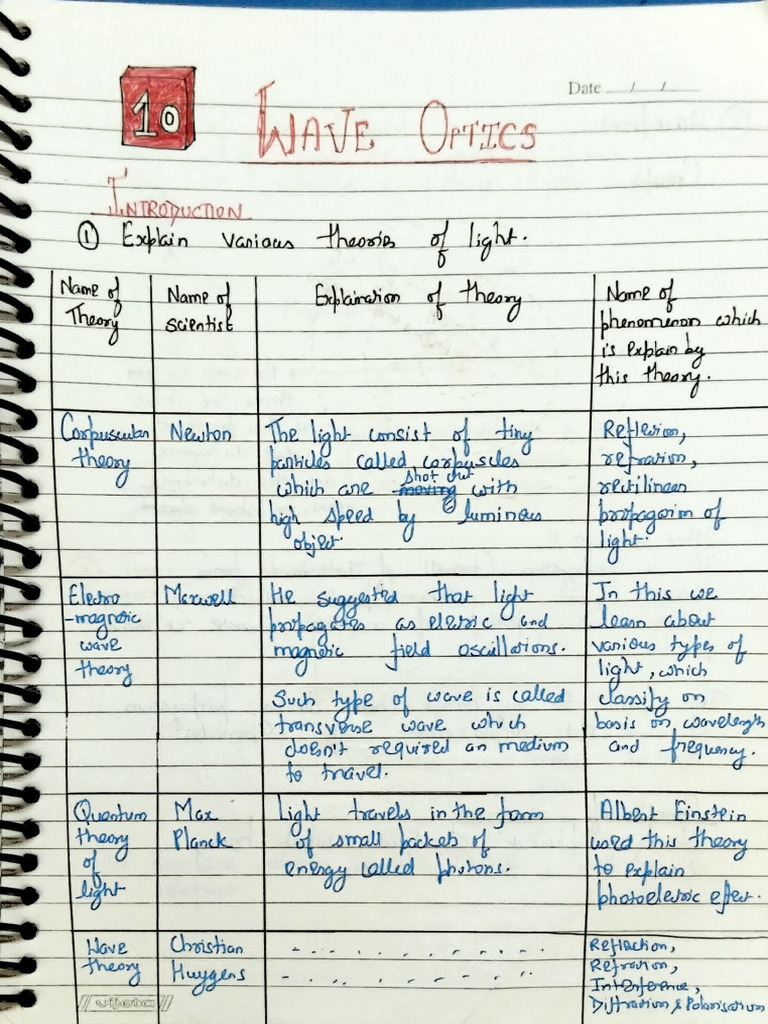 10
Date / /
WAVE OPTICS
INTRODUCTION
① Explain various theories of light.
Name of
Theory
Name of
scientist
Explaination of theory
Name of
phenomenon which
is explain by
this theory.
Corpuscular
theory
Newton
The light consist of tiny
particles called corpuscles
shot out
which are moving with
high speed by luminous
object.
Reflexion,
refraction,
rectilinear
propagation of
light.
Electro
-magnetic
wave
theory
Maxwell
He suggested that light
propagates as electric and
magnetic field oscillations.
Such type of wave is called
transverse wave which
doesn't required an medium
to travel.
In this we
learn about
various types of
light, which
classify on
basis on wavelength
and frequency.
Quantum
theory
of
light
Max
Planck
Light travels in the form
of small packets of
energy called photons.
Albert Einstein
used this theory
to explain
photoelectric effect.
Wave
theory
Christian
Huygens
Reflection,
Refraction,
Interference,
Diffraction & Polarisation
vijeta